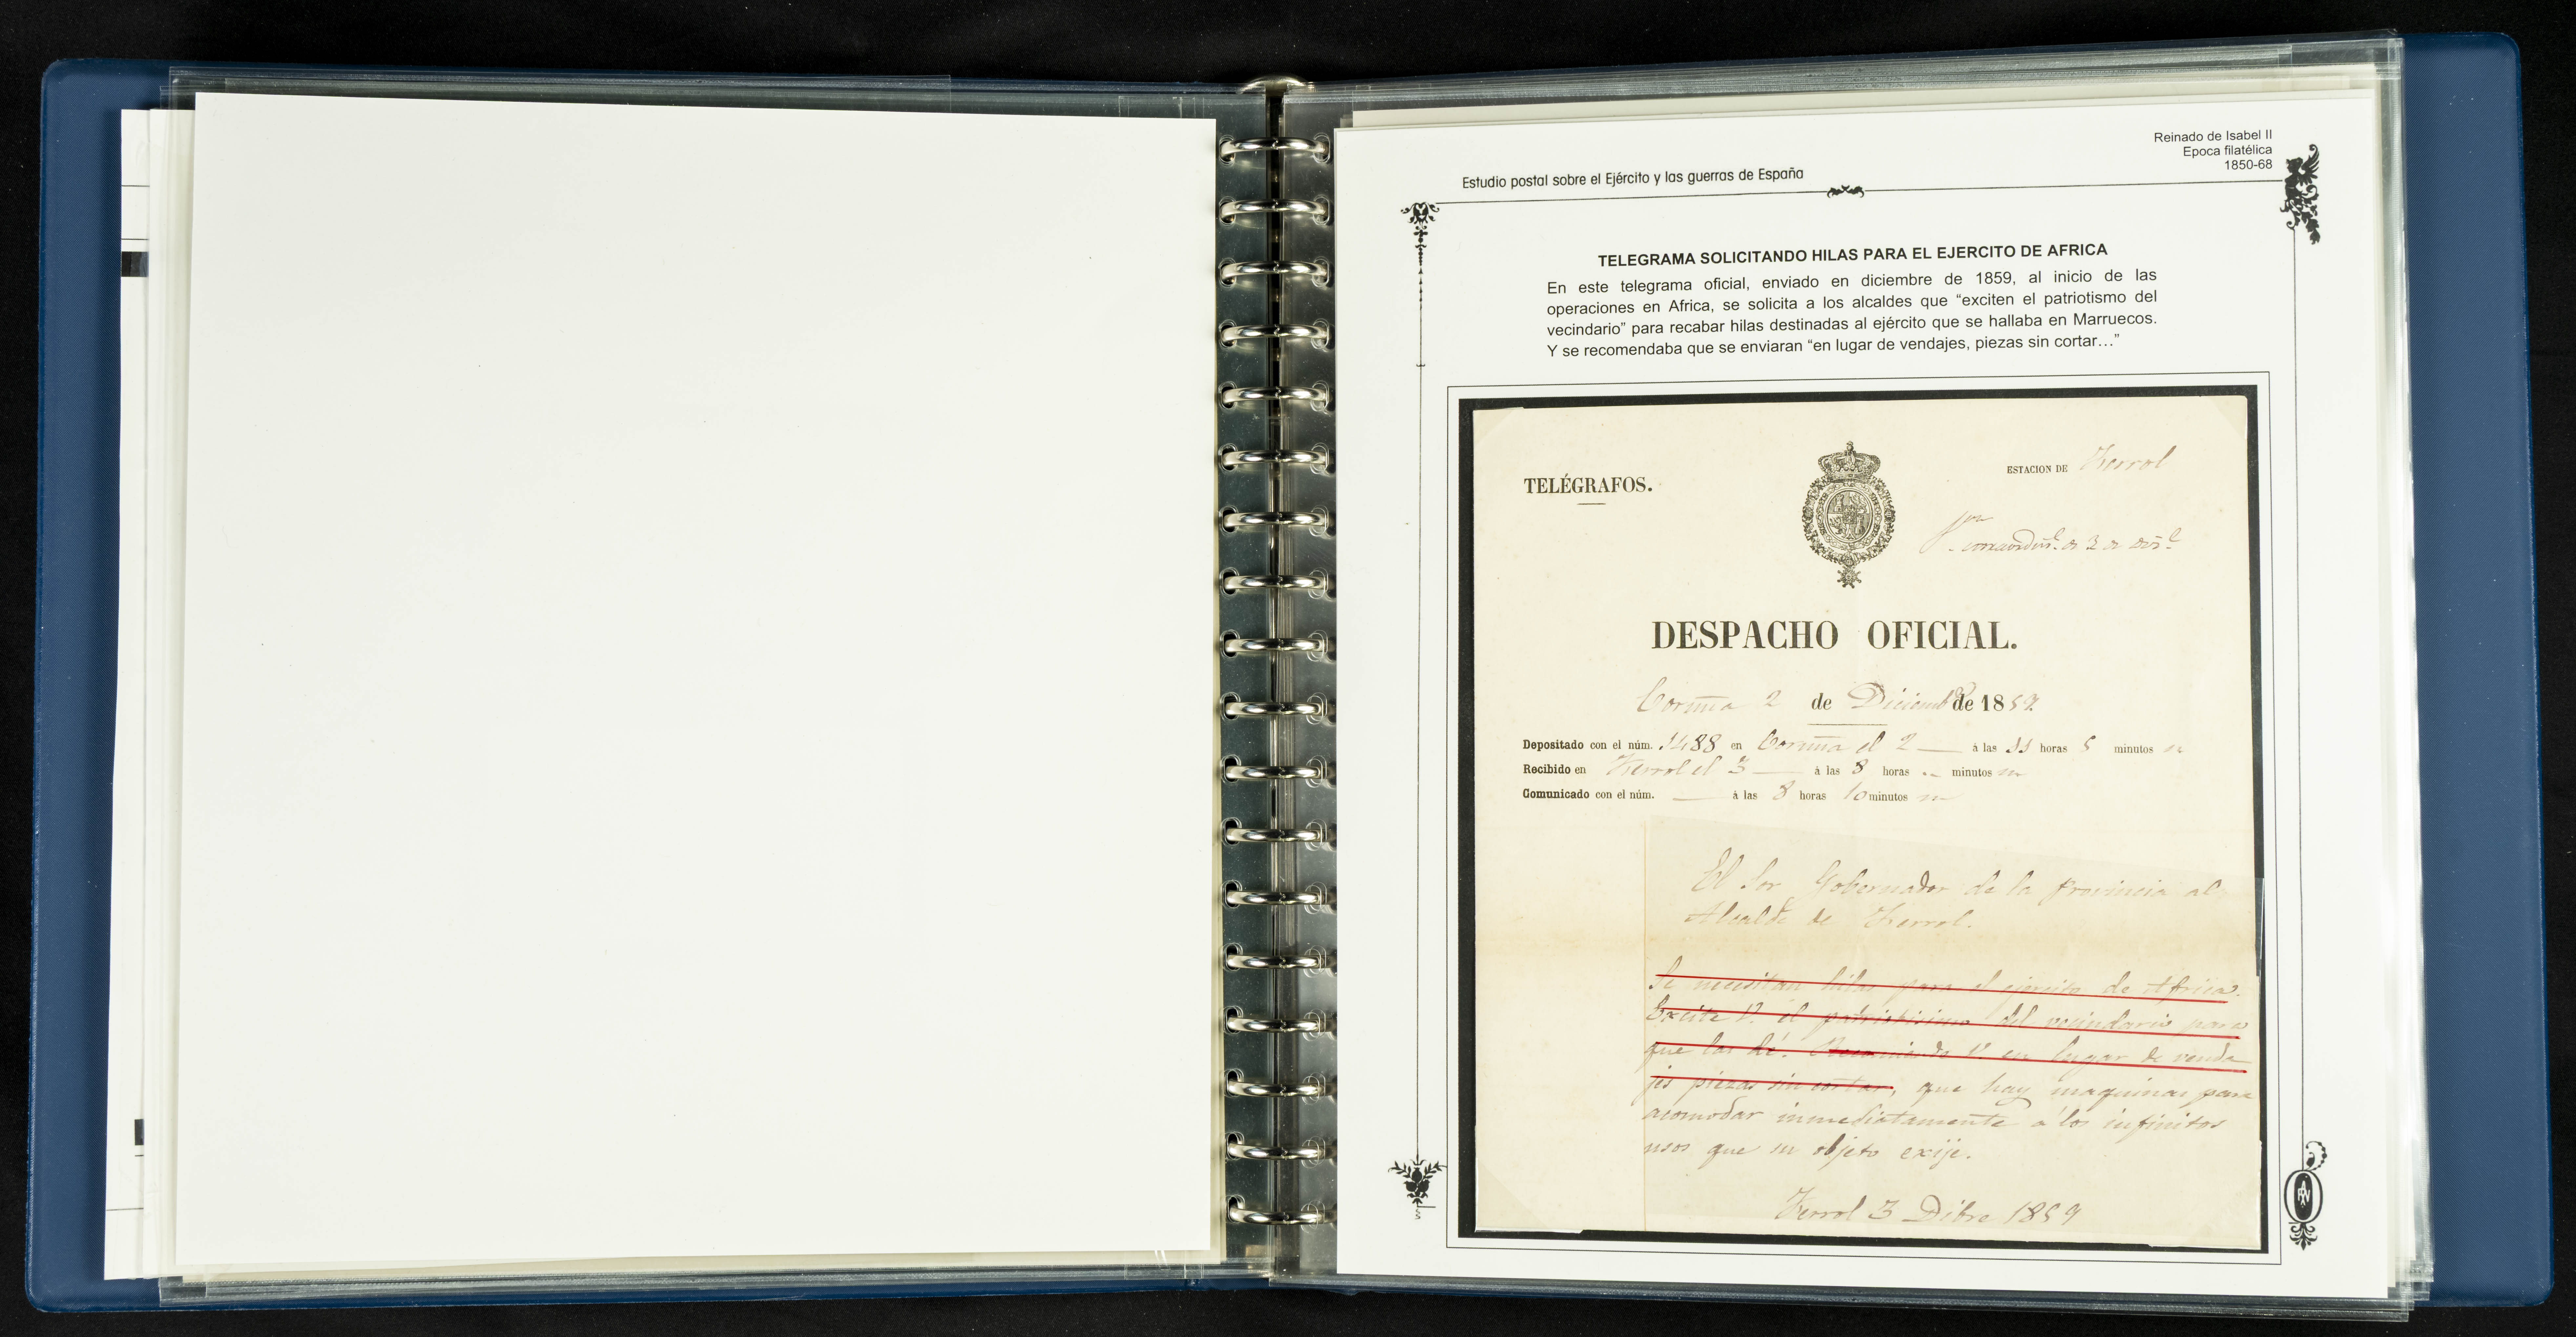 Reinado de Isabel II
Epoca filatélica
1850-68
Estudio postal sobre el Ejército y las guerras de España
TELEGRAMA SOLICITANDO HILAS PARA EL EJERCITO DE AFRICA
En este telegrama oficial, enviado en diciembre de 1859, al inicio de las
operaciones en Africa, se solicita a los alcaldes que “exciten el patriotismo del
vecindario” para recabar hilas destinadas al ejército que se hallaba en Marruecos.
Y se recomendaba que se enviaran “en lugar de vendajes, piezas sin cortar…”
TELÉGRAFOS.
ESTACION DE Ferrol
DESPACHO OFICIAL.
Coruña 2 de Diciembre de 1859
Depositado con el núm. 1488 en Coruña el 2 á las 11 horas 5 minutos
Recibido en Ferrol el 3 á las 8 horas minutos m
Comunicado con el núm. á las 8 horas 10 minutos m
El Sor Gobernador de la Provincia al
Alcalde de Ferrol.
Se necesitan hilas para el ejercito de Africa.
Excite V. el patriotismo del vecindario para
que las dé. Recomiende V. en lugar de venda
jes piezas sin cortar, que hay maquinas para
acomodar inmediatamente á los infinitos
usos que su objeto exije.
Ferrol 3 Dibre 1859